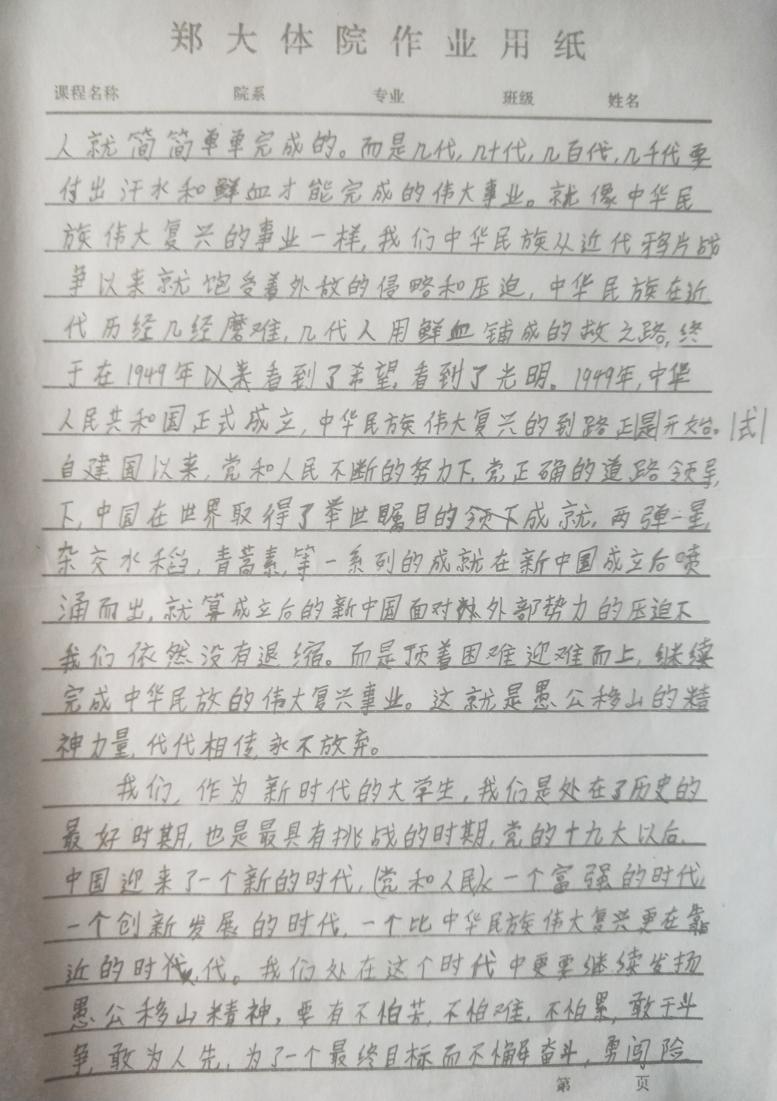 郑大体院作业用纸
课程名称 院系 专业 班级 姓名
人就简简单单完成的。而是几代,几十代,几百代,几千代要
付出汗水和鲜血才能完成的伟大事业。就像中华民
族伟大复兴的事业一样,我们中华民族从近代鸦片战
争以来就饱受着外敌的侵略和压迫,中华民族在近
代历经几经磨难,几代人用鲜血铺成的救之路,终
于在1949年看到了希望,看到了光明。1949年,中华
人民共和国正式成立,中华民族伟大复兴的到路正是开始。|式|
自建国以来,党和人民不断的努力下,党正确的道路领导
下,中国在世界取得了举世瞩目的成就,两弹一星,
杂交水稻,青蒿素,等一系列的成就在新中国成立后喷
涌而出,就算成立后的新中国面对外部势力的压迫下
我们依然没有退缩。而是顶着困难迎难而上,继续
完成中华民放的伟大复兴事业。这就是愚公移山的精
神力量,代代相传,永不放弃。
我们,作为新时代的大学生,我们是处在了历史的
最好时期,也是最具有挑战的时期,党的十九大以后,
中国迎来了一个新的时代,(党和人民)一个富强的时代,
一个创新发展的时代,一个比中华民族伟大复兴更在靠
近的时代。我们处在这个时代中更要继续发扬
愚公移山精神,要有不怕苦,不怕难,不怕累,敢于斗
争,敢为人先,为了一个最终目标而不懈奋斗,勇闯险
第 页